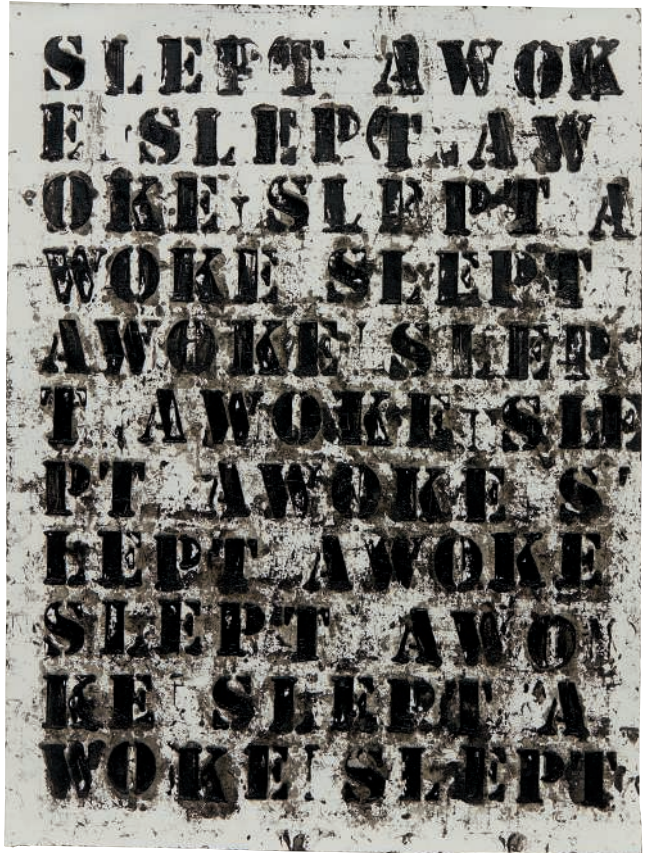 SLEPT AWOK
E SLEPT AW
OKE SLEPT A
WOKE SLEPT
AWOKE SLEP
T AWOKE SLE
PT AWOKE S
LEPT AWOKE
SLEPT AWO
KE SLEPT A
WOKE SLEPT